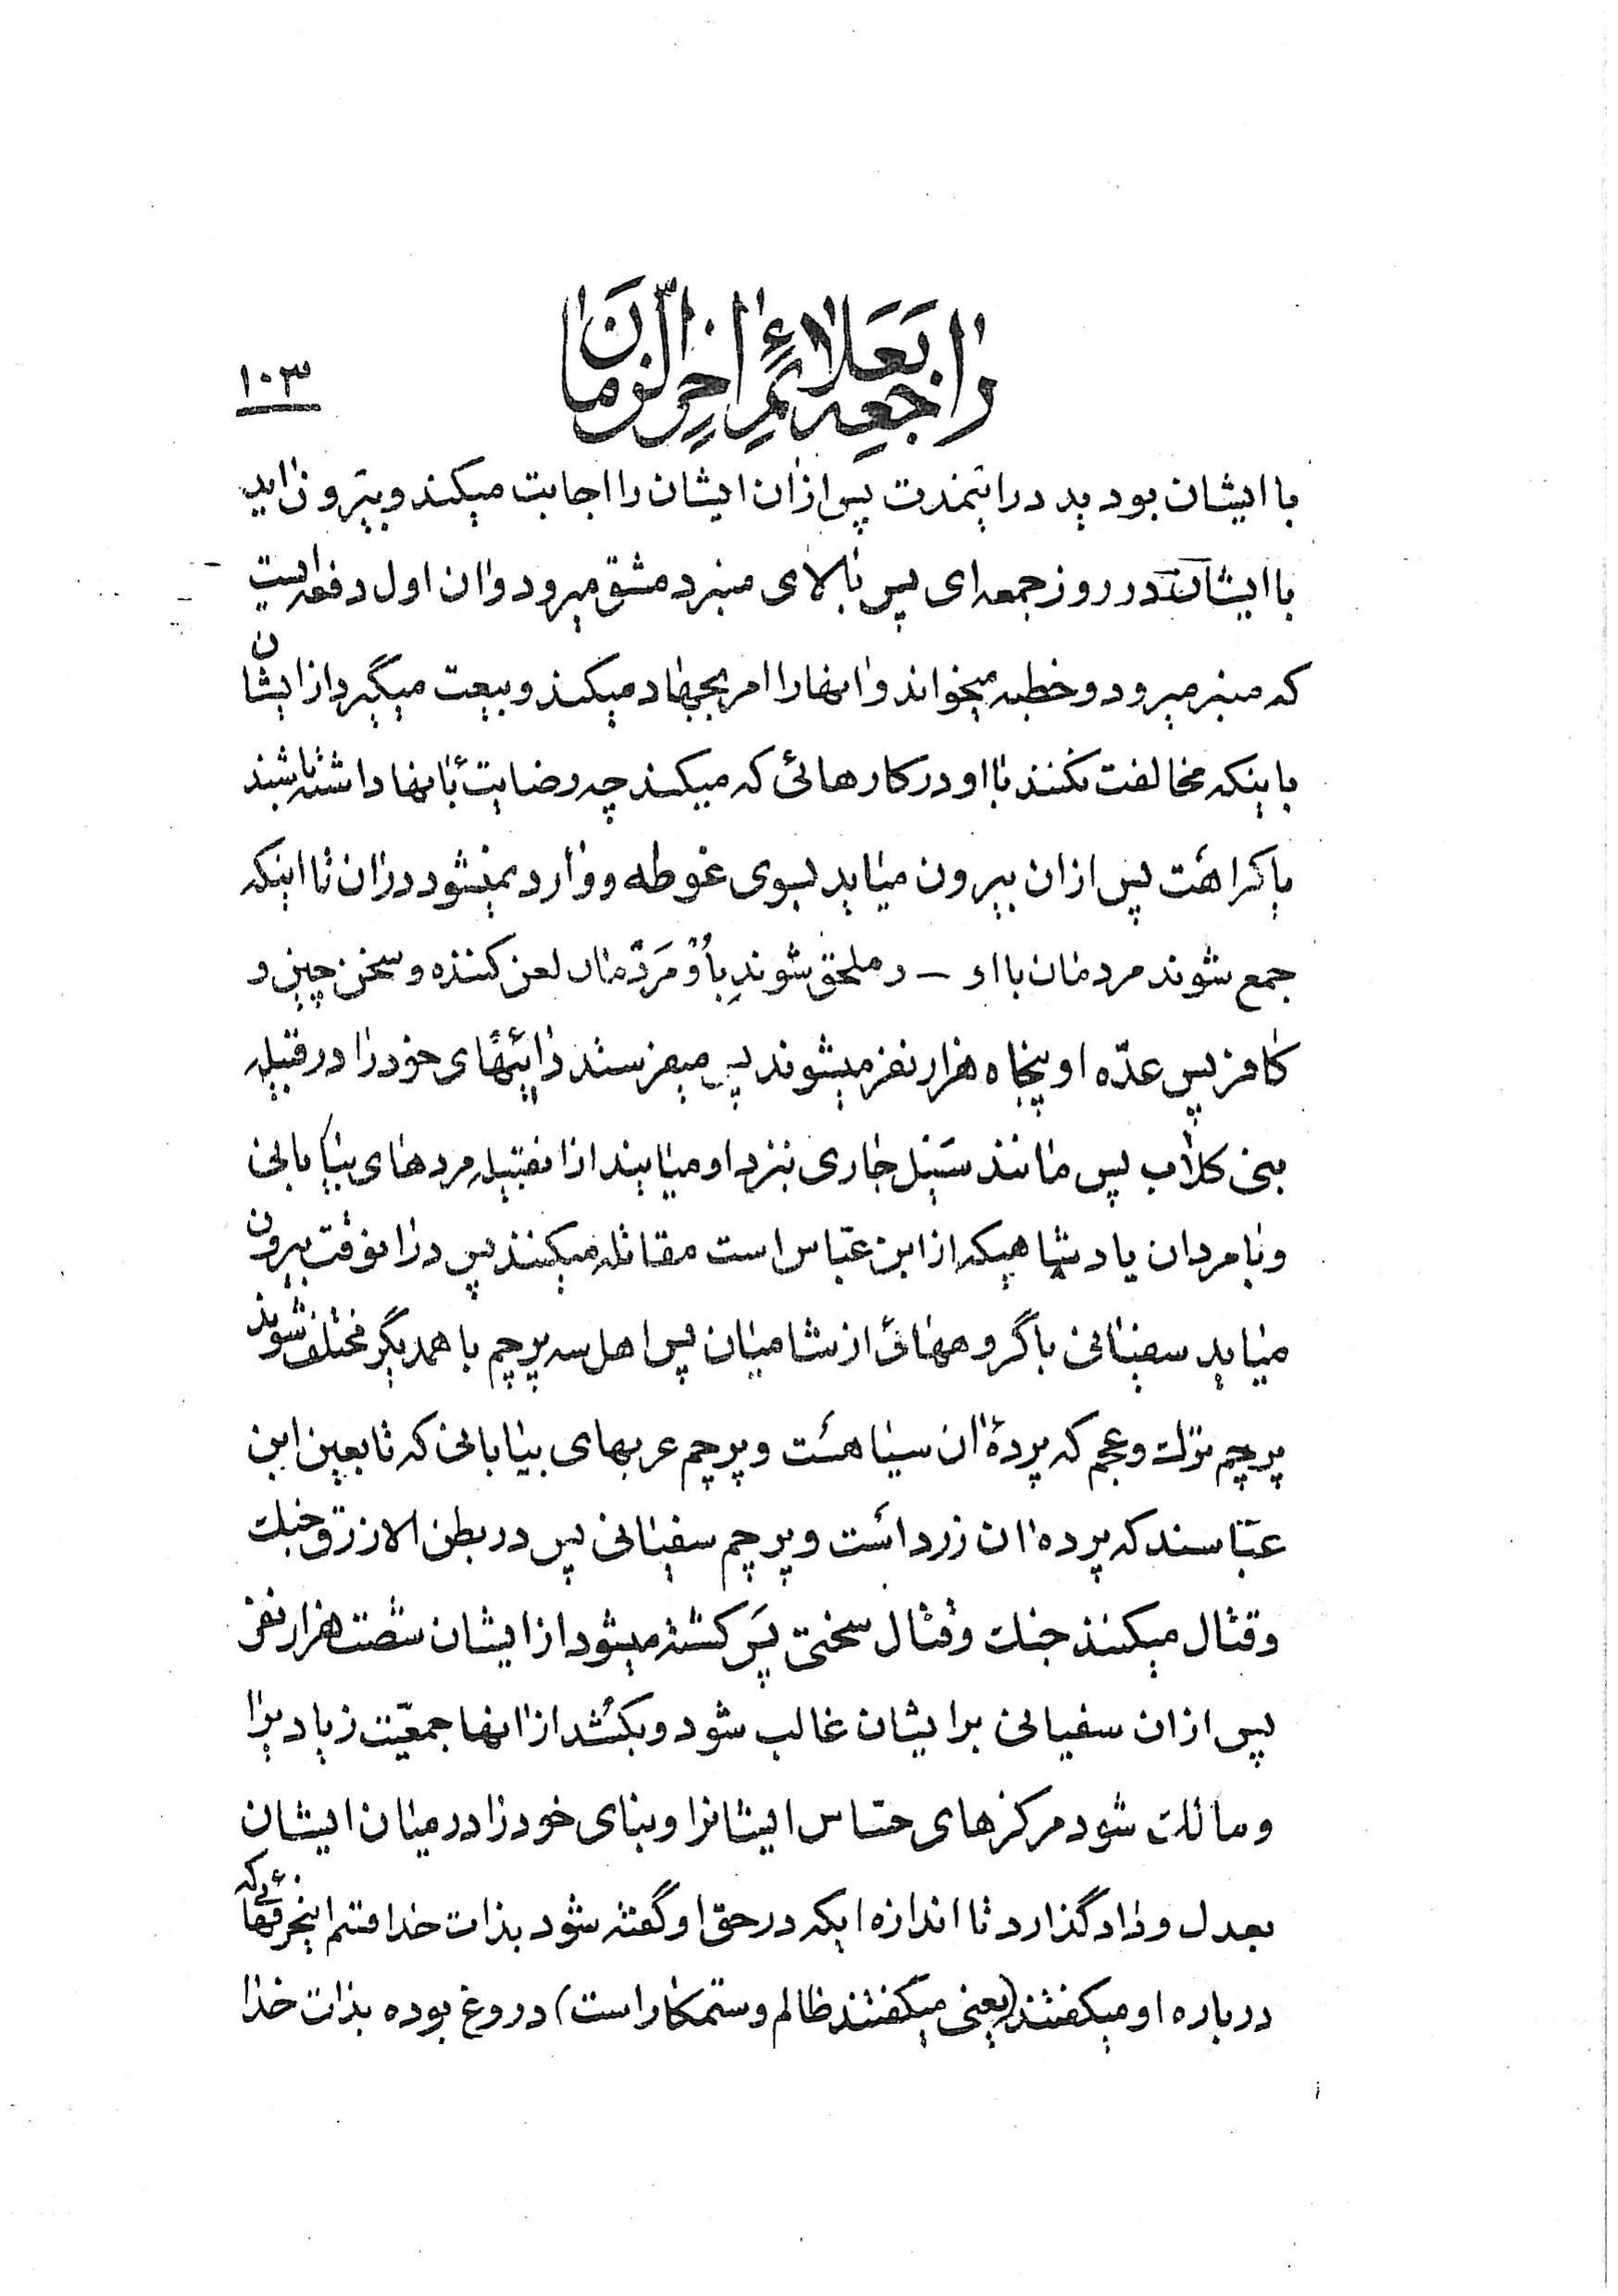 راجعه بعلائم اخر الزمان
۱۰۳
با ایشان بودید در اینمدت پس از ان ایشان را اجابت میکند و بیرون اید
با ایشان در روز جمعه ای پس بالای منبر دمشق میرود و ان اول دفعه ایست
که منبر میرود و خطبه میخواند و انها را امر بجهاد میکند و بیعت میگیرد از ایشان
باینکه مخالفت نکنند با او در کارهائی که میکند چه رضایت بانها داشته باشند
یا کراهت پس از ان بیرون میاید بسوی غوطه و وارد نمیشود در ان تا اینکه
جمع شوند مردمان با او – و ملحق شوند باو مردمان لعن کننده و سخن چین و
کافر پس عده او پنجاه هزار نفر میشوند پس میفرستد دائیهای خود را در قبیله
بنی کلاب پس مانند سیل جاری بنزد او میایند از انقبیله مردهای بیابانی
و با مردان پادشاهیکه از ابن عباس است مقاتله میکنند پس در انوقت بیرون
میاید سفیانی با گروههائی از شامیان پس اهل سه پرچم با همدیگر مختلف شوند
پرچم ترک و عجم که پردهٔ ان سیاهست و پرچم عربهای بیابانی که تابعین ابن
عباسند که پرده ان زرد است و پرچم سفیانی پس در بطن الازرق جنک
و قتال میکنند جنک و قتال سختی پس کشته میشود از ایشان شصت هزار نفر
پس از ان سفیانی بر ایشان غالب شود و بکشد از انها جمعیت زیاد یرا
و مالک شود مرکزهای حساس ایشانرا و بنای خود را در میان ایشان
بعدل و داد گذارد تا اندازه ایکه در حق او گفته شود بذات خدا قسم اینحرفهائی که
درباره او میگفتند (یعنی میگفتند ظالم و ستمکار است) دروغ بوده بذات خدا